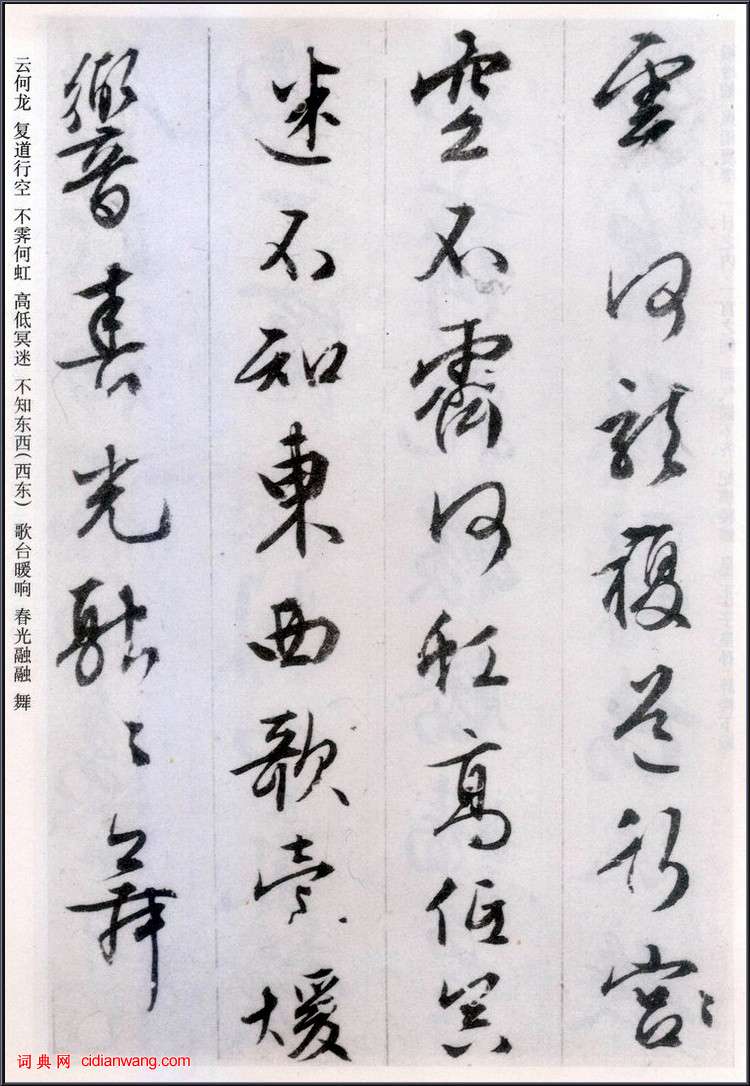 雲何龍複道行宮
空不霽何虹高低冥
迷不知東西歌臺煖
響春光融〻舞
云何龙 复道行空 不霁何虹 高低冥迷 不知东西(西东) 歌台暖响 春光融融 舞
词典网 cidianwang.com